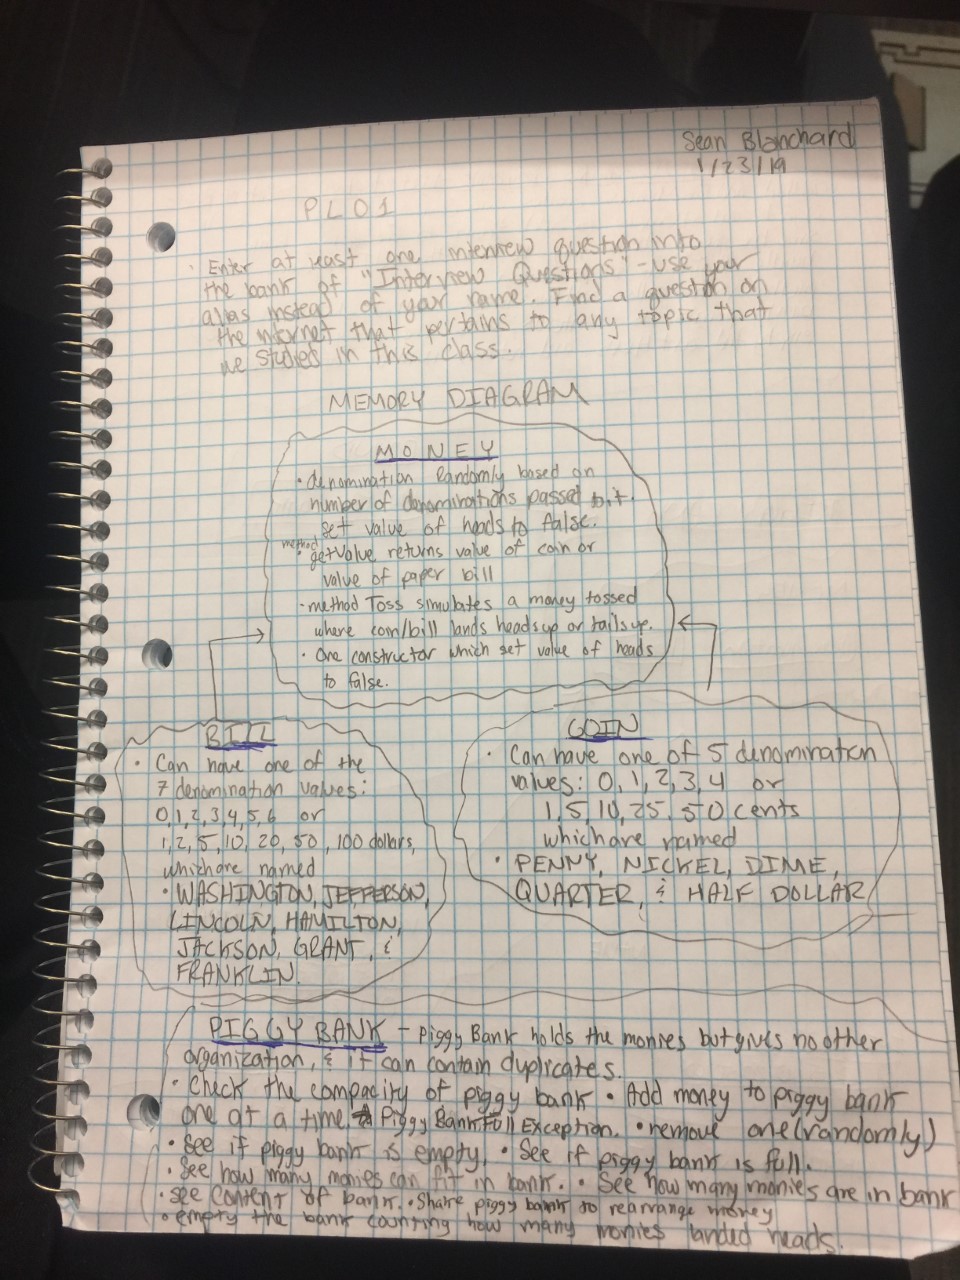 Sean Blanchard
1/23/19
PL01
· Enter at least one interview question into
the bank of "Interview Questions" - use your
alias instead of your name. Find a question on
the internet that pertains to any topic that
we studied in this class.
MEMORY DIAGRAM
MONEY
· denomination Randomly based on
number of denominations passed to it.
set value of heads to false.
method
· getValue returns value of coin or
value of paper bill
· method Toss simulates a money tossed
where coin/bill lands heads up or tails up.
· One constructor which set value of heads
to false.
BILL
· Can have one of the
7 denomination values:
0,1,2,3,4,5,6 or
1,2,5,10,20,50,100 dollars,
which are named
· WASHINGTON, JEFFERSON,
LINCOLN, HAMILTON,
JACKSON, GRANT, &
FRANKLIN.
COIN
· Can have one of 5 denomination
values: 0,1,2,3,4 or
1,5,10,25,50 cents
which are named
· PENNY, NICKEL, DIME,
QUARTER, & HALF DOLLAR
PIGGY BANK - Piggy Bank holds the monies but gives no other
organization, & it can contain duplicates.
· Check the compacity of piggy bank · Add money to piggy bank
one at a time Piggy Bank Full Exception. · remove one (randomly)
· See if piggy bank is empty. · See if piggy bank is full.
· See how many monies can fit in bank. · See how many monies are in bank
· see content of bank. · Shake piggy bank to rearrange money
· empty the bank counting how many monies landed heads.